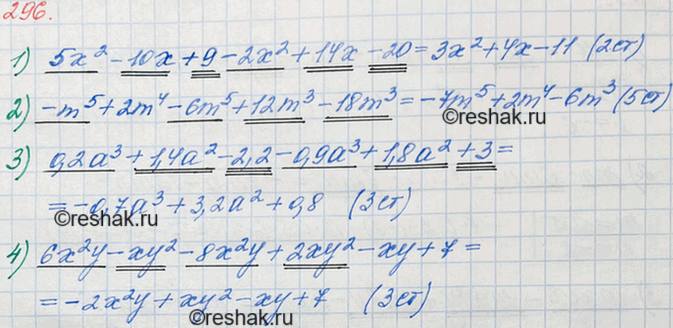 296.
1) 5x² - 10x + 9 - 2x² + 14x - 20 = 3x² + 4x - 11 (2ст)
2) -m⁵ + 2m⁴ - 6m⁵ + 12m³ - 18m³ = -7m⁵ + 2m⁴ - 6m³ (5ст)
©reshak.ru ©reshak.ru
3) 0,2a³ + 1,4a² - 2,2 - 0,9a³ + 1,8a² + 3 =
= -0,7a³ + 3,2a² + 0,8 (3ст)
©reshak.ru
4) 6x²y - xy² - 8x²y + 2xy² - xy + 7 =
= -2x²y + xy² - xy + 7 (3ст)
©reshak.ru